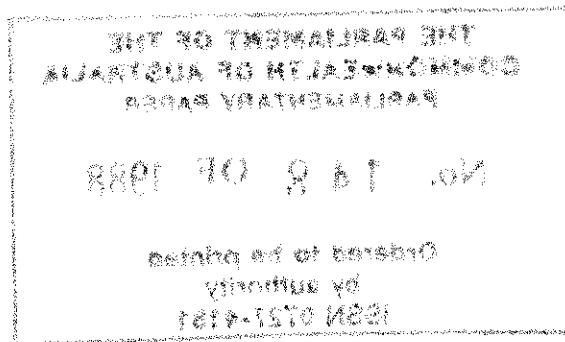 THE PARLIAMENT OF THE
COMMONWEALTH OF AUSTRALIA
PARLIAMENTARY PAPER
No. 148 OF 1988
Ordered to be printed
by authority
ISSN 0727-4181